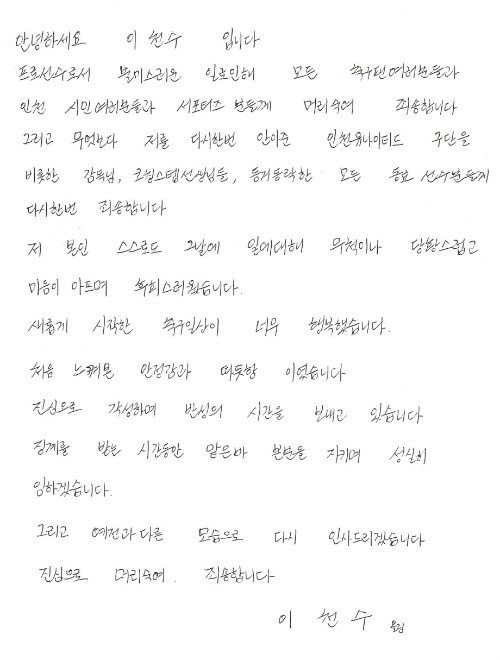 안녕하세요 이 천수 입니다
프로선수로서 불미스러운 일로인해 모든 축구팬여러분들과
인천 시민여러분들과 서포터즈 분들께 머리숙여 죄송합니다
그리고 무엇보다 저를 다시한번 안아준 인천유나이티드 구단을
비롯한 감독님, 코칭스텝선생님들, 동거동락한 모든 동료 선수분들께
다시한번 죄송합니다
저 본인 스스로도 그날에 일에대해 무척이나 당황스럽고
마음이 아프며 수치스러웠습니다.
새롭게 시작한 축구인상이 너무 행복했습니다.
처음 느껴본 안정감과 따듯함 이었습니다
진심으로 각성하며 반성의 시간을 보내고 있습니다
징계를 받는 시간동안 맡은바 본분을 지키며 성실히
임하겠습니다.
그리고 예전과다른 모습으로 다시 인사드리겠습니다
진심으로 머리숙여. 죄송합니다
이 천 수 올림